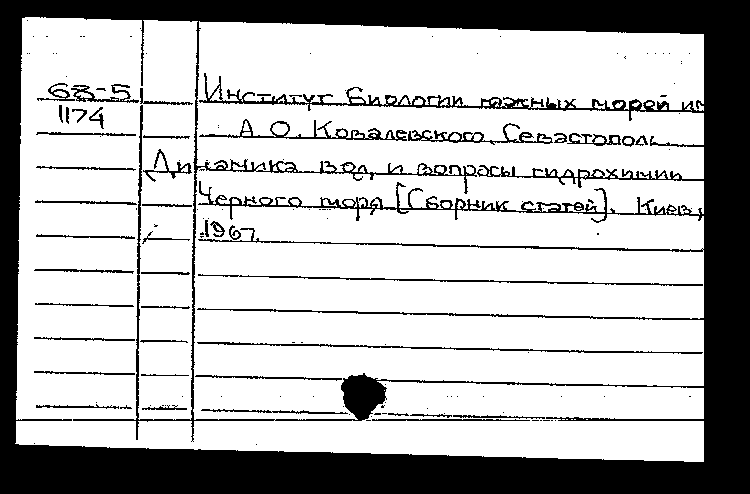 68-5
1174
Институт биологии южных морей им
А. О. Ковалевского. Севастополь.
Динамика вод, и вопросы гидрохимии
Черного моря [Сборник статей]. Киев,
1967.